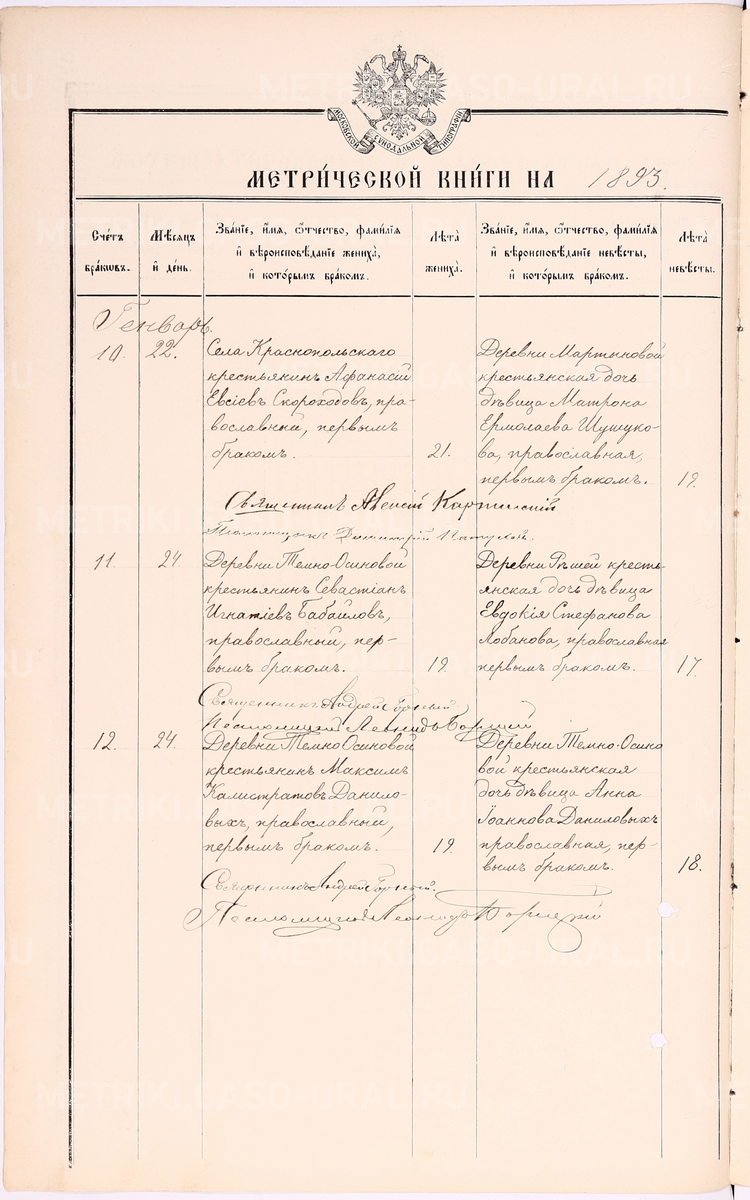 МОСКОВСКОЙ СѴНОДАЛЬНОЙ ТИПОГРАФІИ
МЕТРИ́ЧЕСКОЙ КНИ́ГИ НА 1893.
Сче́тъ бра́кωвъ.
Мѣ́сѧцъ и҆ де́нь.
Зва́нїе, и҆́мѧ, ѻ҆́тчество, фами́лїѧ
и҆ вѣроисповѣ́данїе жениха̀,
и҆ кото́рымъ бра́комъ.
Лѣ́та жениха̀.
Зва́нїе, и҆́мѧ, ѻ҆́тчество, фами́лїѧ
и҆ вѣроисповѣ́данїе невѣ́сты,
и҆ кото́рымъ бра́комъ.
Лѣ́та невѣ́сты.
Генварь.
10. 22.
Села Краснопольскаго
крестьянинъ Афанасій
Евсіевъ Скороходовъ, пра-
вославный, первымъ
бракомъ.
21.
Деревни Мартыновой
крестьянская дочь
дѣвица Матрона
Ермолаева Шушуко-
ва, православная,
первымъ бракомъ.
19.
Священникъ
Димитрій
11. 24.
Деревни Темно-Осиновой
крестьянинъ Севастіанъ
Игнатіевъ Бабаиловъ,
православный, пер-
вымъ бракомъ.
19.
Деревни Рѣшей кресть-
янская дочь дѣвица
Евдокія Стефанова
Лобанова, православная
первымъ бракомъ.
17.
Священникъ Андрей
Псаломщикъ Леонидъ
12. 24.
Деревни Темно Осиновой
крестьянинъ Максимъ
Калистратовъ Данило-
выхъ, православный,
первымъ бракомъ.
19.
Деревни Темно-Осино
вой крестьянская
дочь дѣвица Анна
Іоаннова Даниловыхъ
православная, пер-
вымъ бракомъ.
18.
Священникъ Андрей
Псаломщикъ Леонидъ
METRIKI.GASO-URAL.RU